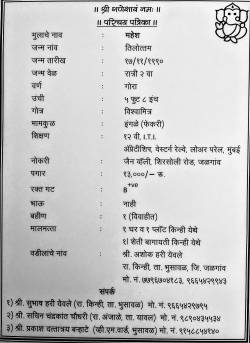 ॥ श्री गणेशाय नमः ॥
॥ परिचय पत्रिका ॥
मुलाचे नाव : महेश
जन्म नांव : तिलोत्तम
जन्म तारीख : १७/११/१९९०
जन्म वेळ : रात्री २ वा
वर्ण : गोरा
उंची : ५ फुट ८ इंच
गोत्र : विश्वामित्र
मामकुळ : इंगळे (फेकरी)
शिक्षण : १२ वी. I.T.I.
अ‍ॅप्रेंटीशिप, वेस्टर्न रेल्वे, लोअर परेल, मुंबई
नोकरी : जैन व्हॅली, शिरसोली रोड, जळगांव
पगार : १३,०००/- रु.
रक्त गट : B +ve
भाऊ : नाही
बहीण : १ (विवाहीत)
मालमत्ता : १ घर व १ प्लॉट किन्ही येथे
१। शेती बागायती किन्ही येथे
वडीलाचे नांव : श्री. अशोक हरी येवले
रा. किन्ही, ता. भुसावळ, जि. जळगांव
मो. नं. ७७९६७०४१८३, ९६६५४२९७४५
संपर्क
१) श्री. सुभाष हरी येवले (रा. किन्ही, ता. भुसावळ) मो. नं. ९६६५४२९७१५
२) श्री. सचिन चंद्रकांत चौधरी (रा. अंजाळे, ता. यावल) मो. नं. ९८९०४३५५३४
३) श्री. प्रकाश दत्तात्रय बऱ्हाटे (व्ही.एम.वार्ड, भुसावळ) मो. नं. ९१५८८५४१४०